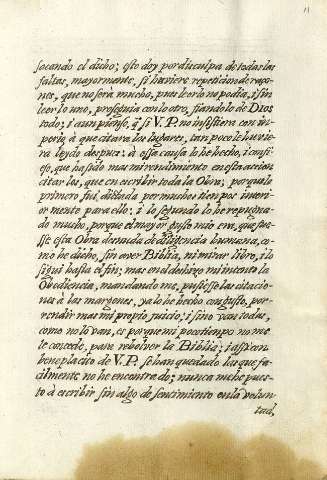 11
socando el dicho; esto doy por disculpa de todas las
faltas, mayormente, si huviere repeticion de razo-
nes, que no será mucho, pues leerlo no podia, i sin
leer lo uno, proseguia con lo otro, fiandolo de DIOS
todo; i aun pienso, q̃ si V. P. no insistiera con im-
perio, à que citara los lugares, tampoco lo huvie-
ra leydo despues: à essa causa lo he hecho, i confi-
eso, que ha sido mas mi rendimiento en esta accion
citarlos, que en escribir toda la Obra; porque lo
primero fui, dictada por muchos tiempos interi-
mente para ello: i lo segundo lo he repugna-
do mucho, porque el mayor gusto mio era, que fue-
sse esta Obra denuda de diligencia humana, co-
mo he dicho, sin ver Biblia, ni mirar libro, i lo
segui hasta el fin; mas en el deshizo mi intento la
Obediencia, mandandome, pusiesse las citacio-
nes à los margenes, ya lo he hecho con gusto, por
rendir mas mi propio juicio; i si no van todas,
como no lo van, es porque mi poco tiempo no me
lo concede, para rebolver la Biblia; i assi con
beneplacito de V. P. se han quedado las que fa-
cilmente no he encontrado; nunca me he pues-
to à escribir sin algo de sentimiento en la volun-
tad,